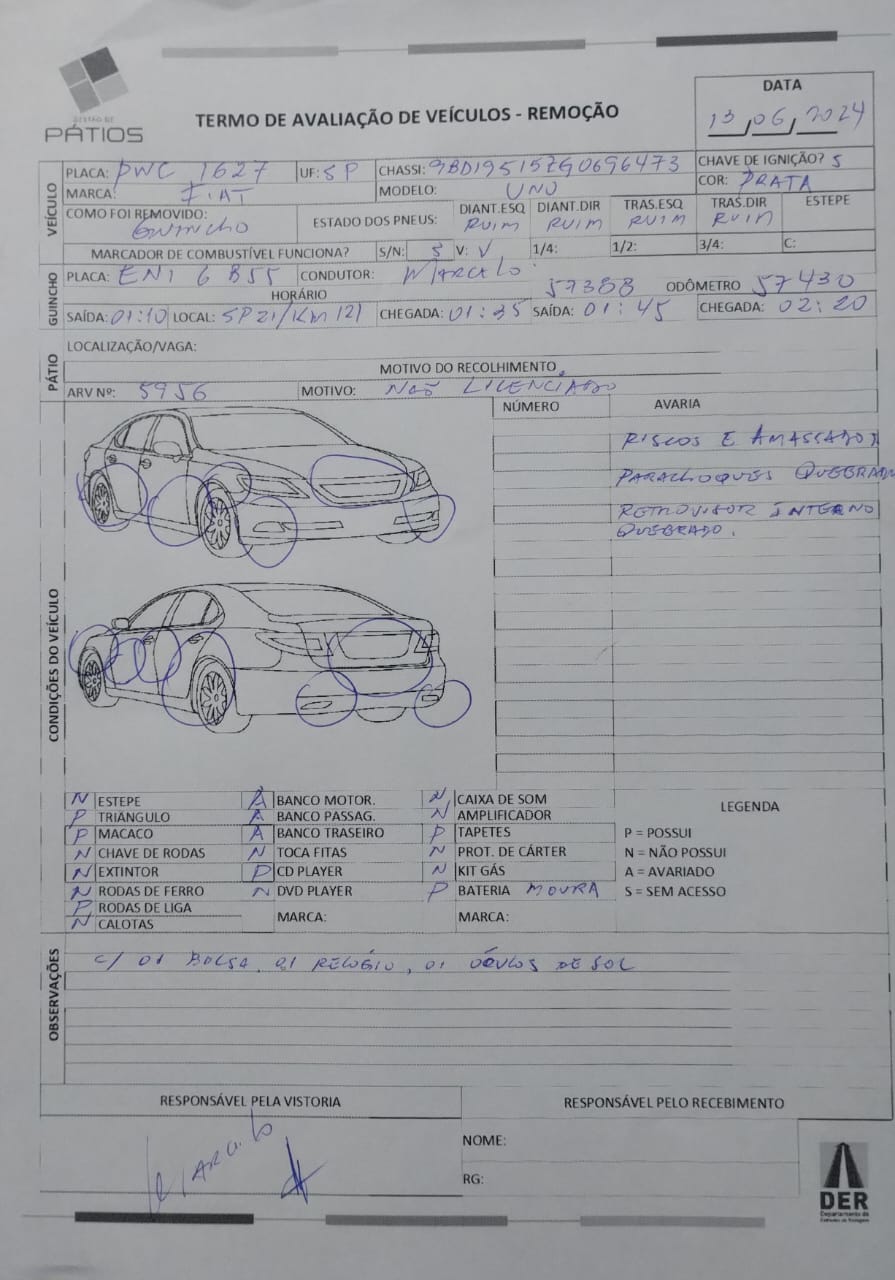 GESTÃO DE
PÁTIOS
TERMO DE AVALIAÇÃO DE VEÍCULOS - REMOÇÃO
DATA
13,06,2024
VEÍCULO
PLACA: PWC 1627 UF: SP CHASSI: 9BD195157G0696473 CHAVE DE IGNIÇÃO? S
MARCA: FIAT MODELO: UNO COR: PRATA
COMO FOI REMOVIDO: GUINCHO ESTADO DOS PNEUS: DIANT.ESQ RUIM DIANT.DIR RUIM TRAS.ESQ RUIM TRAS.DIR RUIM ESTEPE
MARCADOR DE COMBUSTÍVEL FUNCIONA? S/N: S V: V 1/4: 1/2: 3/4: C:
GUINCHO
PLACA: ENI 6B55 CONDUTOR: MARCALO
HORÁRIO 57388 ODÔMETRO 57430
SAÍDA: 01:10 LOCAL: SP21/KM 121 CHEGADA: 01:35 SAÍDA: 01:45 CHEGADA: 02:20
PÁTIO
LOCALIZAÇÃO/VAGA:
MOTIVO DO RECOLHIMENTO
ARV Nº: 5956 MOTIVO: NÃO LICENCIADO
CONDIÇÕES DO VEÍCULO
NÚMERO AVARIA
RISCOS E AMASSADOS
PARACHOQUES QUEBRADO
RETROVISOR INTERNO
QUEBRADO.
N ESTEPE A BANCO MOTOR. N CAIXA DE SOM
P TRIÂNGULO A BANCO PASSAG. N AMPLIFICADOR
P MACACO A BANCO TRASEIRO P TAPETES
N CHAVE DE RODAS N TOCA FITAS N PROT. DE CÁRTER
N EXTINTOR P CD PLAYER N KIT GÁS
N RODAS DE FERRO N DVD PLAYER P BATERIA MOURA
P RODAS DE LIGA
N CALOTAS MARCA: MARCA:
LEGENDA
P = POSSUI
N = NÃO POSSUI
A = AVARIADO
S = SEM ACESSO
OBSERVAÇÕES
C/ 01 BOLSA, 01 RELÓGIO, 01 ÓCULOS DE SOL
RESPONSÁVEL PELA VISTORIA
RESPONSÁVEL PELO RECEBIMENTO
NOME:
RG:
DER
Departamento de
Estradas de Rodagem